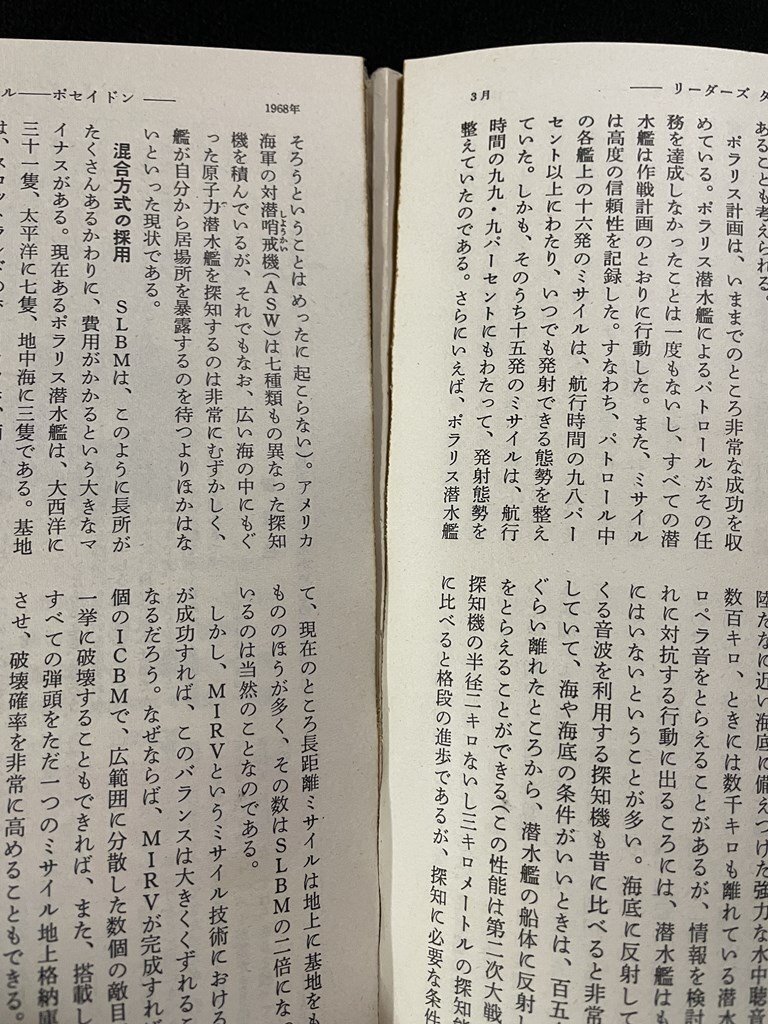 3月
―― リーダーズ ダ
あることも考えられる。
ポラリス計画は、いままでのところ非常な成功を収
めている。ポラリス潜水艦によるパトロールがその任
務を達成しなかったことは一度もないし、すべての潜
水艦は作戦計画のとおりに行動した。また、ミサイル
は高度の信頼性を記録した。すなわち、パトロール中
の各艦上の十六発のミサイルは、航行時間の九八パー
セント以上にわたり、いつでも発射できる態勢を整え
ていた。しかも、そのうち十五発のミサイルは、航行
時間の九九・九パーセントにもわたって、発射態勢を
整えていたのである。さらにいえば、ポラリス潜水艦
陸だなに近い海底に備えつけた強力な水中聴音
数百キロ、ときには数千キロも離れている潜水
ロペラ音をとらえることがあるが、情報を検討
れに対抗する行動に出るころには、潜水艦はも
にはいないということが多い。海底に反射して
くる音波を利用する探知機も昔に比べると非常
していて、海や海底の条件がいいときは、百五十
ぐらい離れたところから、潜水艦の船体に反射し
をとらえることができる(この性能は第二次大戦
探知機の半径二キロないし三キロメートルの探知能
に比べると格段の進歩であるが、探知に必要な条件
ル――ポセイドン ――
1968年
そろうということは めったに起こらない)。アメリカ
海軍の対潜哨戒機(ASW)は七種類もの異なった探知
しょうかい
機を積んでいるが、それでもなお、広い海の中にもぐ
った原子力潜水艦を探知するのは非常にむずかしく、
艦が自分から居場所を暴露するのを待つよりほかはな
いといった現状である。
混合方式の採用 SLBMは、このように長所が
たくさんあるかわりに、費用がかかるという大きなマ
イナスがある。現在あるポラリス潜水艦は、大西洋に
三十一隻、太平洋に七隻、地中海に三隻である。基地
て、現在のところ長距離ミサイルは地上に基地をも
もののほうが多く、その数はSLBMの二倍になっ
いるのは当然のことなのである。
しかし、MIRVというミサイル技術における
が成功すれば、このバランスは大きくくずれるこ
なるだろう。なぜならば、MIRVが完成すれば
個のICBMで、広範囲に分散した数個の敵目
一挙に破壊することもできれば、また、搭載し
すべての弾頭をただ一つのミサイル地上格納庫
させ、破壊確率を非常に高めることもできる。